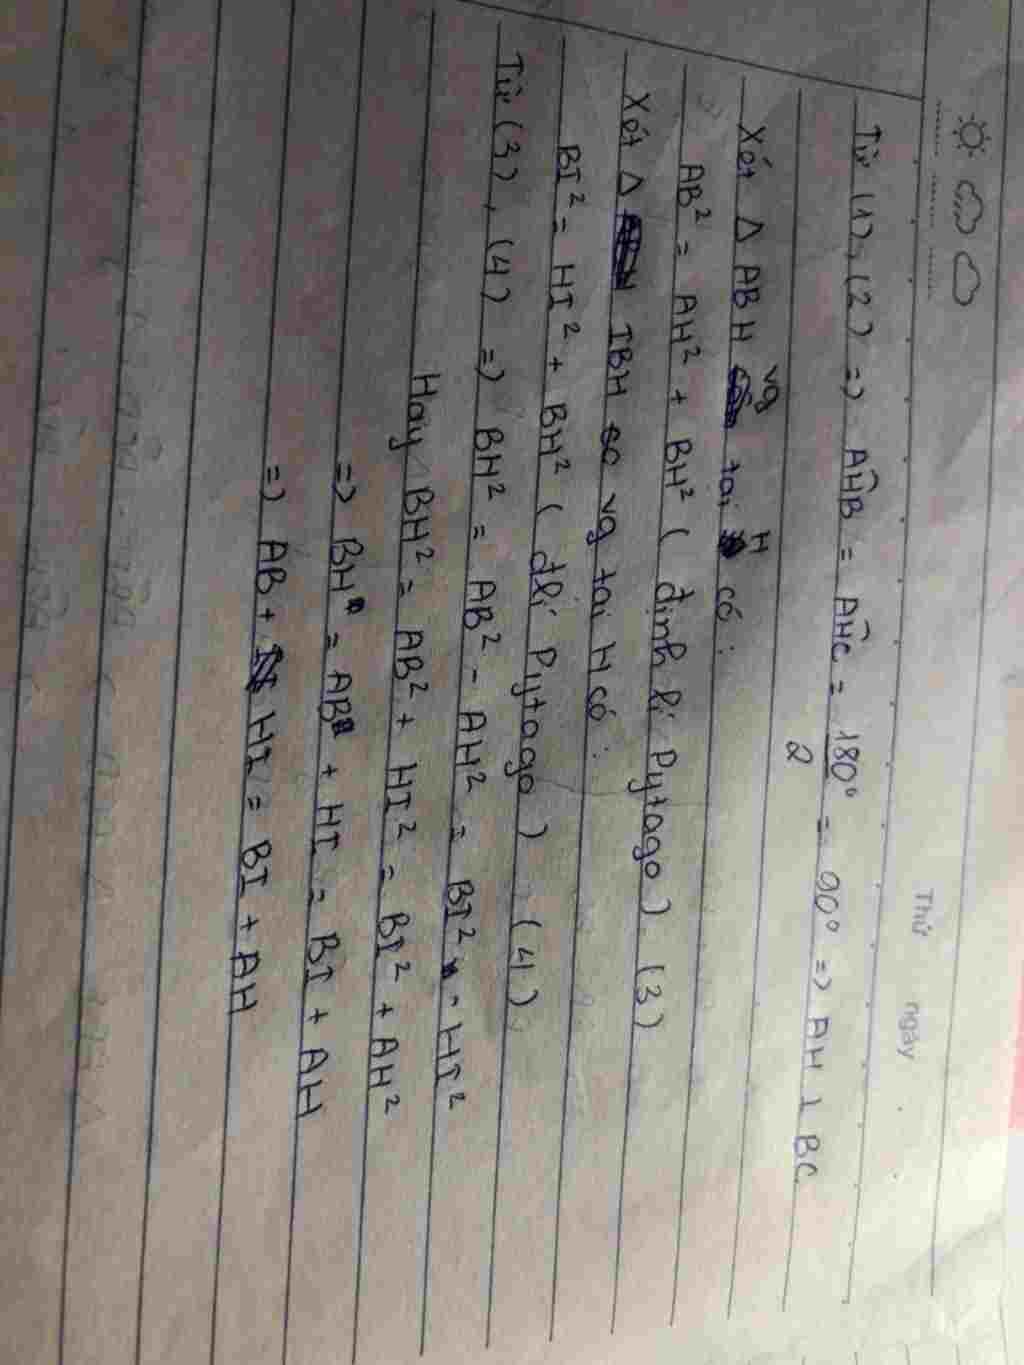 Thứ ngày
Từ (1), (2) => AĤB = AĤC = 180° / 2 = 90° => AH ⊥ BC
Xét Δ ABH vg tại H có :
AB² = AH² + BH² ( định lí Pytago ) (3)
Xét Δ IBH vg tại H có :
BI² = HI² + BH² ( đlí Pytago ) (4)
Từ (3), (4) => BH² = AB² - AH² = BI² - HI²
Hay BH² = AB² + HI² = BI² + AH²
=> BH = AB + HI = BI + AH
=> AB + HI = BI + AH